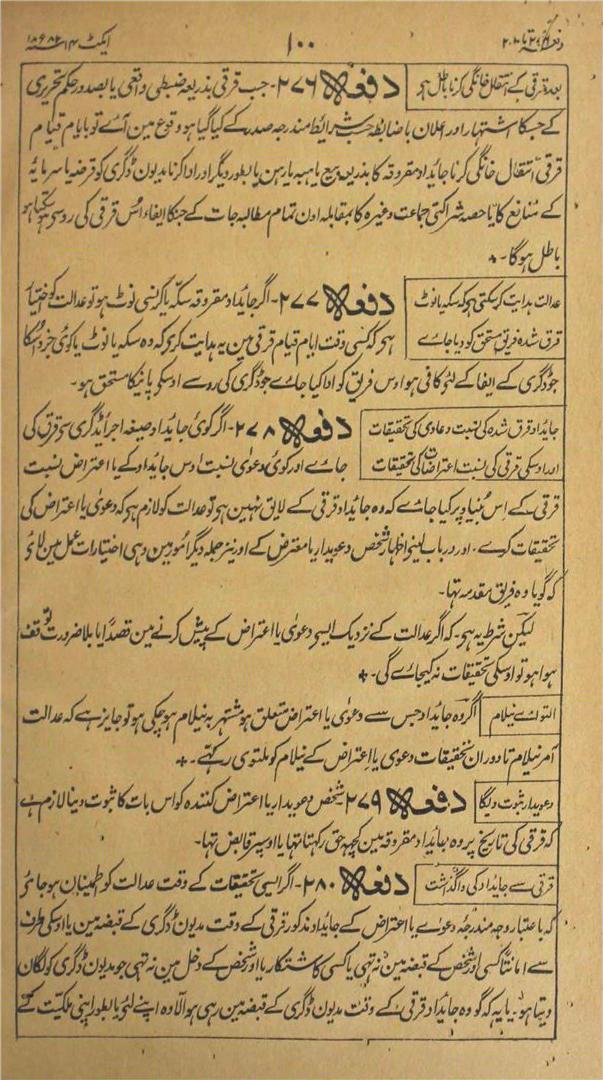 ایکٹ ۱۴ سنہ ۱۸۸۲ ۱۰۰ دفعہ
بعد قرقی کے انتقال خانگی کرنا باطل ہو دفعہ ۲۷۶۔ جب قرقی بذریعہ ضبطی واقعی یا بصدور حکم تحریری
کے جسکا اشتہار اور اعلان باضابطہ حسب شرایط مندرجہ صدر کے کیا گیا ہو وقوع مین آئے تو بایام قیام
قرقی انتقال خانگی کرنا جائداد مقروقہ کا بذریعہ بیع یا ہبہ یا رہن یا بطور دیگر اور ادا کرنا مدیون ڈگری کو قرضہ یا سرمایہ
کے منافع کا یا حصہ شراکتی جماعت وغیرہ کا بمقابلہ اون تمام مطالبہ جات کے جنکا ایفاء اس قرقی کی رو سے ہو سکتا ہو
باطل ہوگا۔
عدالت ہدایت کر سکتی ہو کہ سکہ یا نوٹ دفعہ ۲۷۷۔ اگر جائداد مقروقہ سکہ یا کرنسی نوٹ ہو تو عدالت کو اختیار
قرق شدہ فریق مستحق کو دیا جائے ہو کہ کسی وقت ایام قیام قرقی مین یہ ہدایت کرے کہ وہ سکہ یا نوٹ یا کوئی جزو اوسکا
جو ڈگری کے ایفا کے لئے کافی ہو اوس فریق کو ادا کیا جائے جو ڈگری کی رو سے اوسکو پانیکا مستحق ہو۔
جائداد قرق شدہ کی نسبت دعاوی کی تحقیقات دفعہ ۲۷۸۔ اگر کوئی جائداد صیغہ اجراء ڈگری سے قرق کی
اور اوسکی قرقی کی نسبت اعتراضات کی تحقیقات جائے اور کوئی دعوی نسبت اوس جائداد کے یا اعتراض نسبت
قرقی کے اس بنیاد پر کیا جائے کہ وہ جائداد قرقی کے لایق نہین ہو تو عدالت کو لازم ہو کہ دعوی یا اعتراض کی
تحقیقات کرے۔ اور درباب لینے اظہار شخص دعویدار یا معترض کے اور نیز جملہ دیگر امور مین وہی اختیارات عمل مین لائے
کہ گویا وہ فریق مقدمہ تہا۔
لیکن شرط یہ ہو۔ کہ اگر عدالت کے نزدیک ایسے دعوی یا اعتراض کے پیش کرنے مین قصداً یا بلا ضرورت توقف
ہوا ہو تو اوسکی تحقیقات نہ کیجائے گی۔
التوائے نیلام اگر وہ جائداد جس سے دعوی یا اعتراض متعلق ہو مشتہر بہ نیلام ہو چکی ہو تو جایز ہے کہ عدالت
آمر نیلام تا دوران تحقیقات دعوی یا اعتراض کے نیلام کو ملتوی رکھے۔
دعویدار ثبوت دیگا دفعہ ۲۷۹ شخص دعویدار یا اعتراض کنندہ کو اس بات کا ثبوت دینا لازم ہے
کہ قرقی کی تاریخ پر وہ جائداد مقروقہ مین کچہہ حق رکھتا تہا یا اوسپر قابض تہا۔
قرقی سے جائداد کی واگذاشت دفعہ ۲۸۰۔ اگر ایسی تحقیقات کے وقت عدالت کو اطمینان ہو جائے
کہ باعتبار وجہ مندرجہ دعوے یا اعتراض کے جائداد مذکور قرقی کے وقت مدیون ڈگری کے قبضہ مین یا اوسکی طرف
سے امانتاً کسی اور شخص کے قبضہ مین نہ تہی یا کسی کاشتکار یا اور شخص کے دخل مین نہ تہی جو مدیون ڈگری کو لگان
دیتا ہو۔ یا یہ کہ گو وہ جائداد قرقی کے وقت مدیون ڈگری کے قبضہ مین رہی ہو الا وہ اپنے لئے یا بطور اپنی ملکیت کے